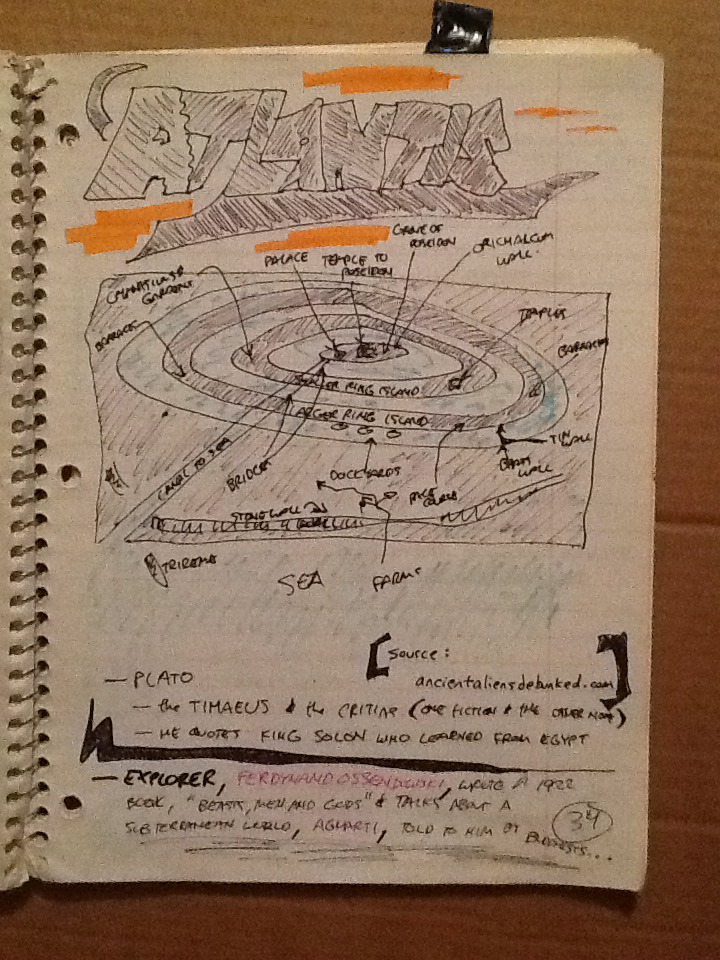 ATLANTIS
GROVE OF
POSEIDON
PALACE
TEMPLE TO
POSEIDON
ORICHALCUM
WALL
GARDENS
TEMPLES
BARRACKS
BARRACKS
SMALLER RING ISLAND
LARGER RING ISLAND
CANAL TO SEA
BRIDGES
DOCKYARDS
TIN
WALL
WALL
STONE WALL
TRIREME
SEA
FARMS
[Source:
ancientaliensdebunked.com]
— PLATO
— the TIMAEUS & the CRITIAE (ONE FICTION & THE OTHER NOT)
— HE QUOTES KING SOLON WHO LEARNED FROM EGYPT
— EXPLORER, FERDYNAND OSSENDOWSKI, WROTE A 1922
BOOK, "BEASTS, MEN AND GODS" & TALKS ABOUT A
SUBTERRANEAN WORLD, AGHARTI, TOLD TO HIM BY BUDDHISTS...
34